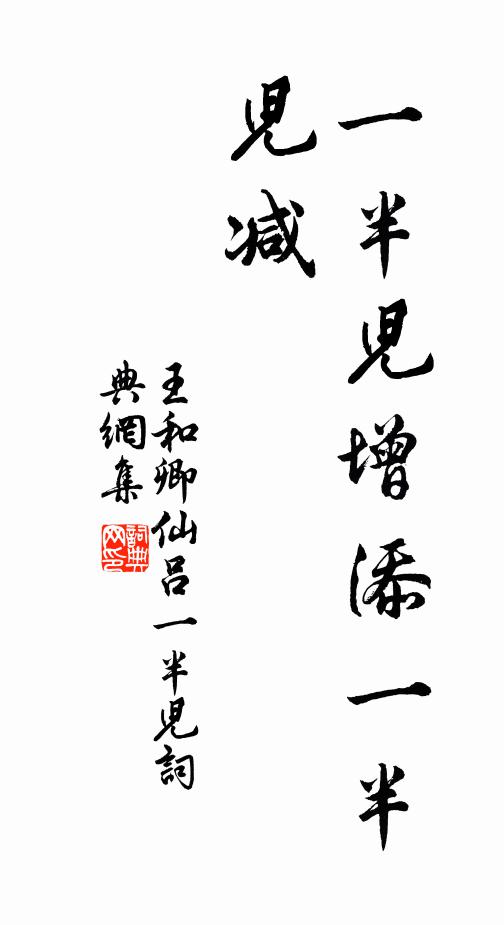 一半兒增添一半
兒減
王和卿仙呂一半兒詞
典網集
詞典网印